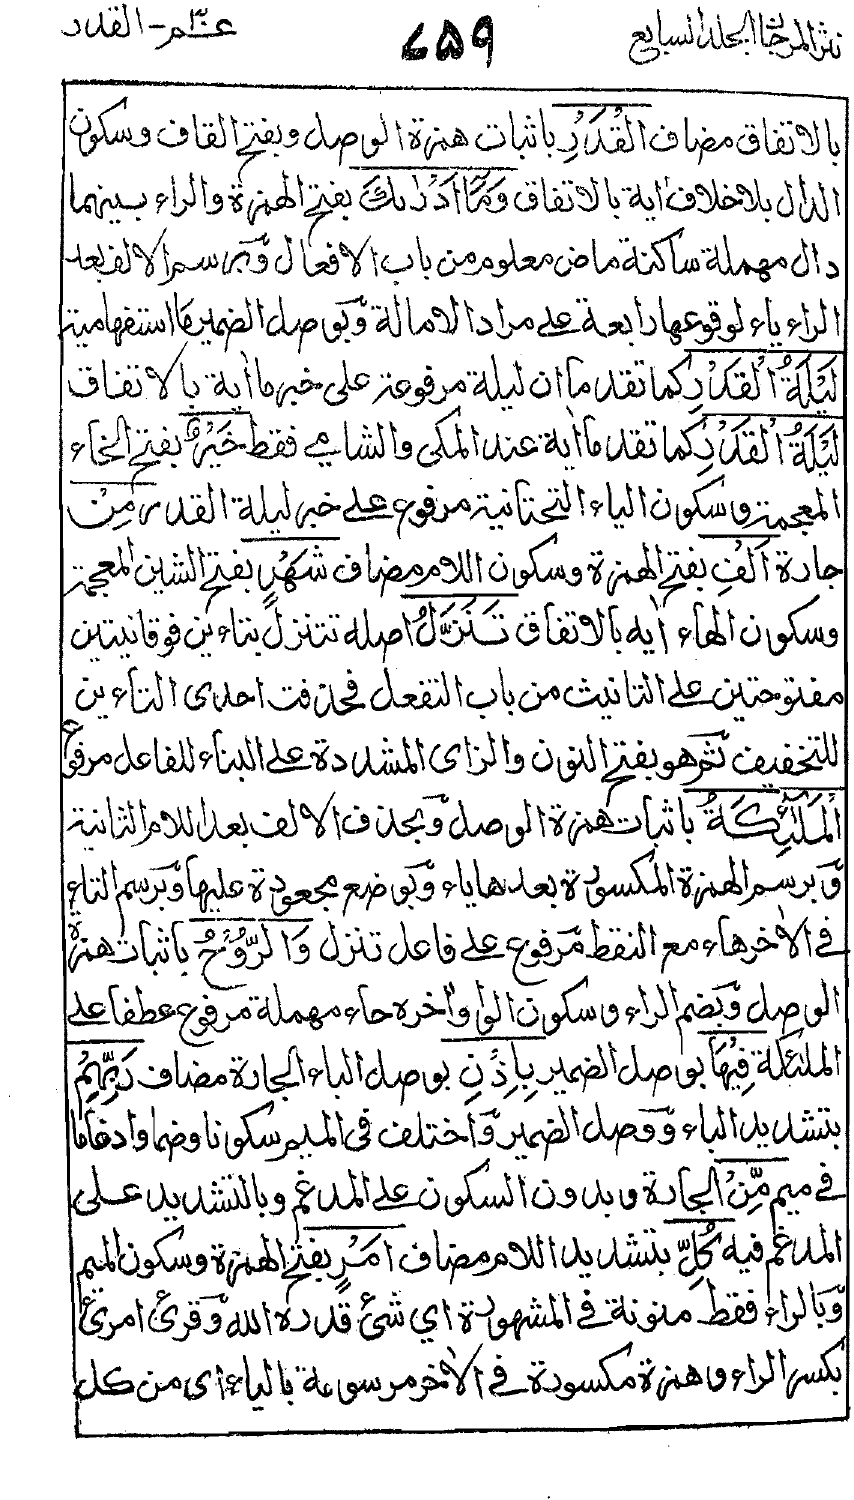 نثر المرجان المجلد السابع
٧٥٩
عم۳۰ - القدر
بالاتفاق مضاف القَدْرِ باثبات همزة الوصل وبفتح القاف وسكون
الدال بلا خلاف اٰية بالاتفاق وَمَآ اَدْرٰىكَ بفتح الهمزة والراء بينهما
دال مهملة ساكنة ماض معلوم من باب الافعال وَّبرسم الالف بعد
الراء ياء لوقوعها رابعة على مراد الامالة وَّبوصل الضمير مَا استفهامية
لَيْلَةُ الْقَدْرِ كما تقدما ان ليلة مرفوعة على خبر ما اٰية بالاتفاق
لَيْلَةُ الْقَدْرِ كما تقدما اٰية عند المكى والشامى فقط خَيْرٌ بفتح الخاء
المعجمة وسكون الياء التحتانية مرفوع على خبر ليلة القدر مِنْ
جارة اَلْفِ بفتح الهمزة وسكون اللام مضاف شَهْرٍ بفتح الشين المعجمة
وسكون الهاء اٰية بالاتفاق تَنَزَّلُ اصله تتنزل بتاءين فوقانيتين
مفتوحتين على التانيث من باب التفعل فحذفت احدى التاءين
للتخفيف ثم هو بفتح النون والزاى المشددة على البناء للفاعل مرفوع
الْمَلٰٓئِكَةُ باثبات همزة الوصل وَّبحذف الالف بعد اللام الثانية
وَّبرسم الهمزة المكسورة بعدها ياء وَّبوضع مجعودة عليها وَّبرسم التاء
فى الاٰخر هاء مع النقط مرفوع على فاعل تنزل وَالرُّوْحُ باثبات همزة
الوصل وَّبضم الراء وسكون الواو اٰخره حاء مهملة مرفوع عطفا على
الملئكة فِيْهَا بوصل الضمير بِاِذْنِ بوصل الباء الجارة مضاف رَبِّهِمْ
بتشديد الباء وَّوصل الضمير وَّاختلف فى الميم سكونا وضما وادغاما
فى ميم مِّنْ الجارة وبدون السكون على المدغم وبالتشديد على
المدغم فيه كُلِّ بتشديد اللام مضاف اَمْرٍ بفتح الهمزة وسكون الميم
وَّبالراء فقط منونة فى المشهورة اى شئ قدره الله وَّقرئ امرئ
بكسر الراء وهمزة مكسورة فى الاٰخر مرسومة بالياء اى من كل